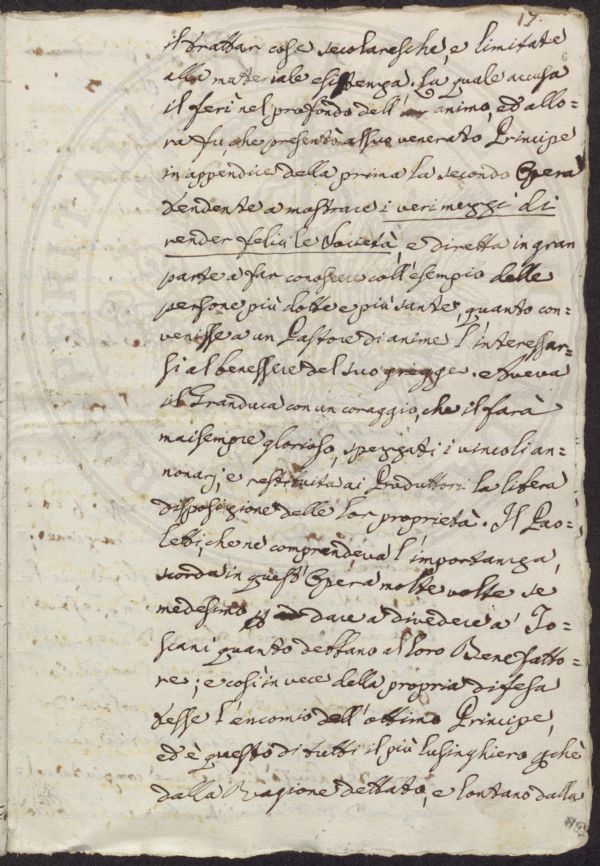 17.
il trattar cose secolaresche, e limitate
alla materiale esistenza. La quale accusa
il ferì nel profondo dell' animo, ed allo=
ra fu che presentò al suo venerato Principe
in appendice della prima la seconda Opera
tendente a mostrare i veri mezzi di
render felici le Società, e diretta in gran
parte a far conoscere coll'esempio delle
persone più dotte e più sante, quanto con=
venisse a un Pastore di anime l'interessar=
si al benessere del suo gregge. Aveva
il Granduca con un coraggio, che il farà
maisempre glorioso, spezzati i vincoli an=
nonarj, e restituita ai Produttori la libera
disposizione delle lor proprietà. Il Pao=
letti, che ne comprendeva l'importanza,
scorda in quest'Opera molte volte se
medesimo p dare a divedere a' To=
scani quanto debbano al loro Benefatto=
re; e così in vece della propria difesa
tesse l'encomio dell'ottimo Principe,
ed è questo di tutti il più lusinghiero pchè
dalla Ragione dettato, e lontano dalla